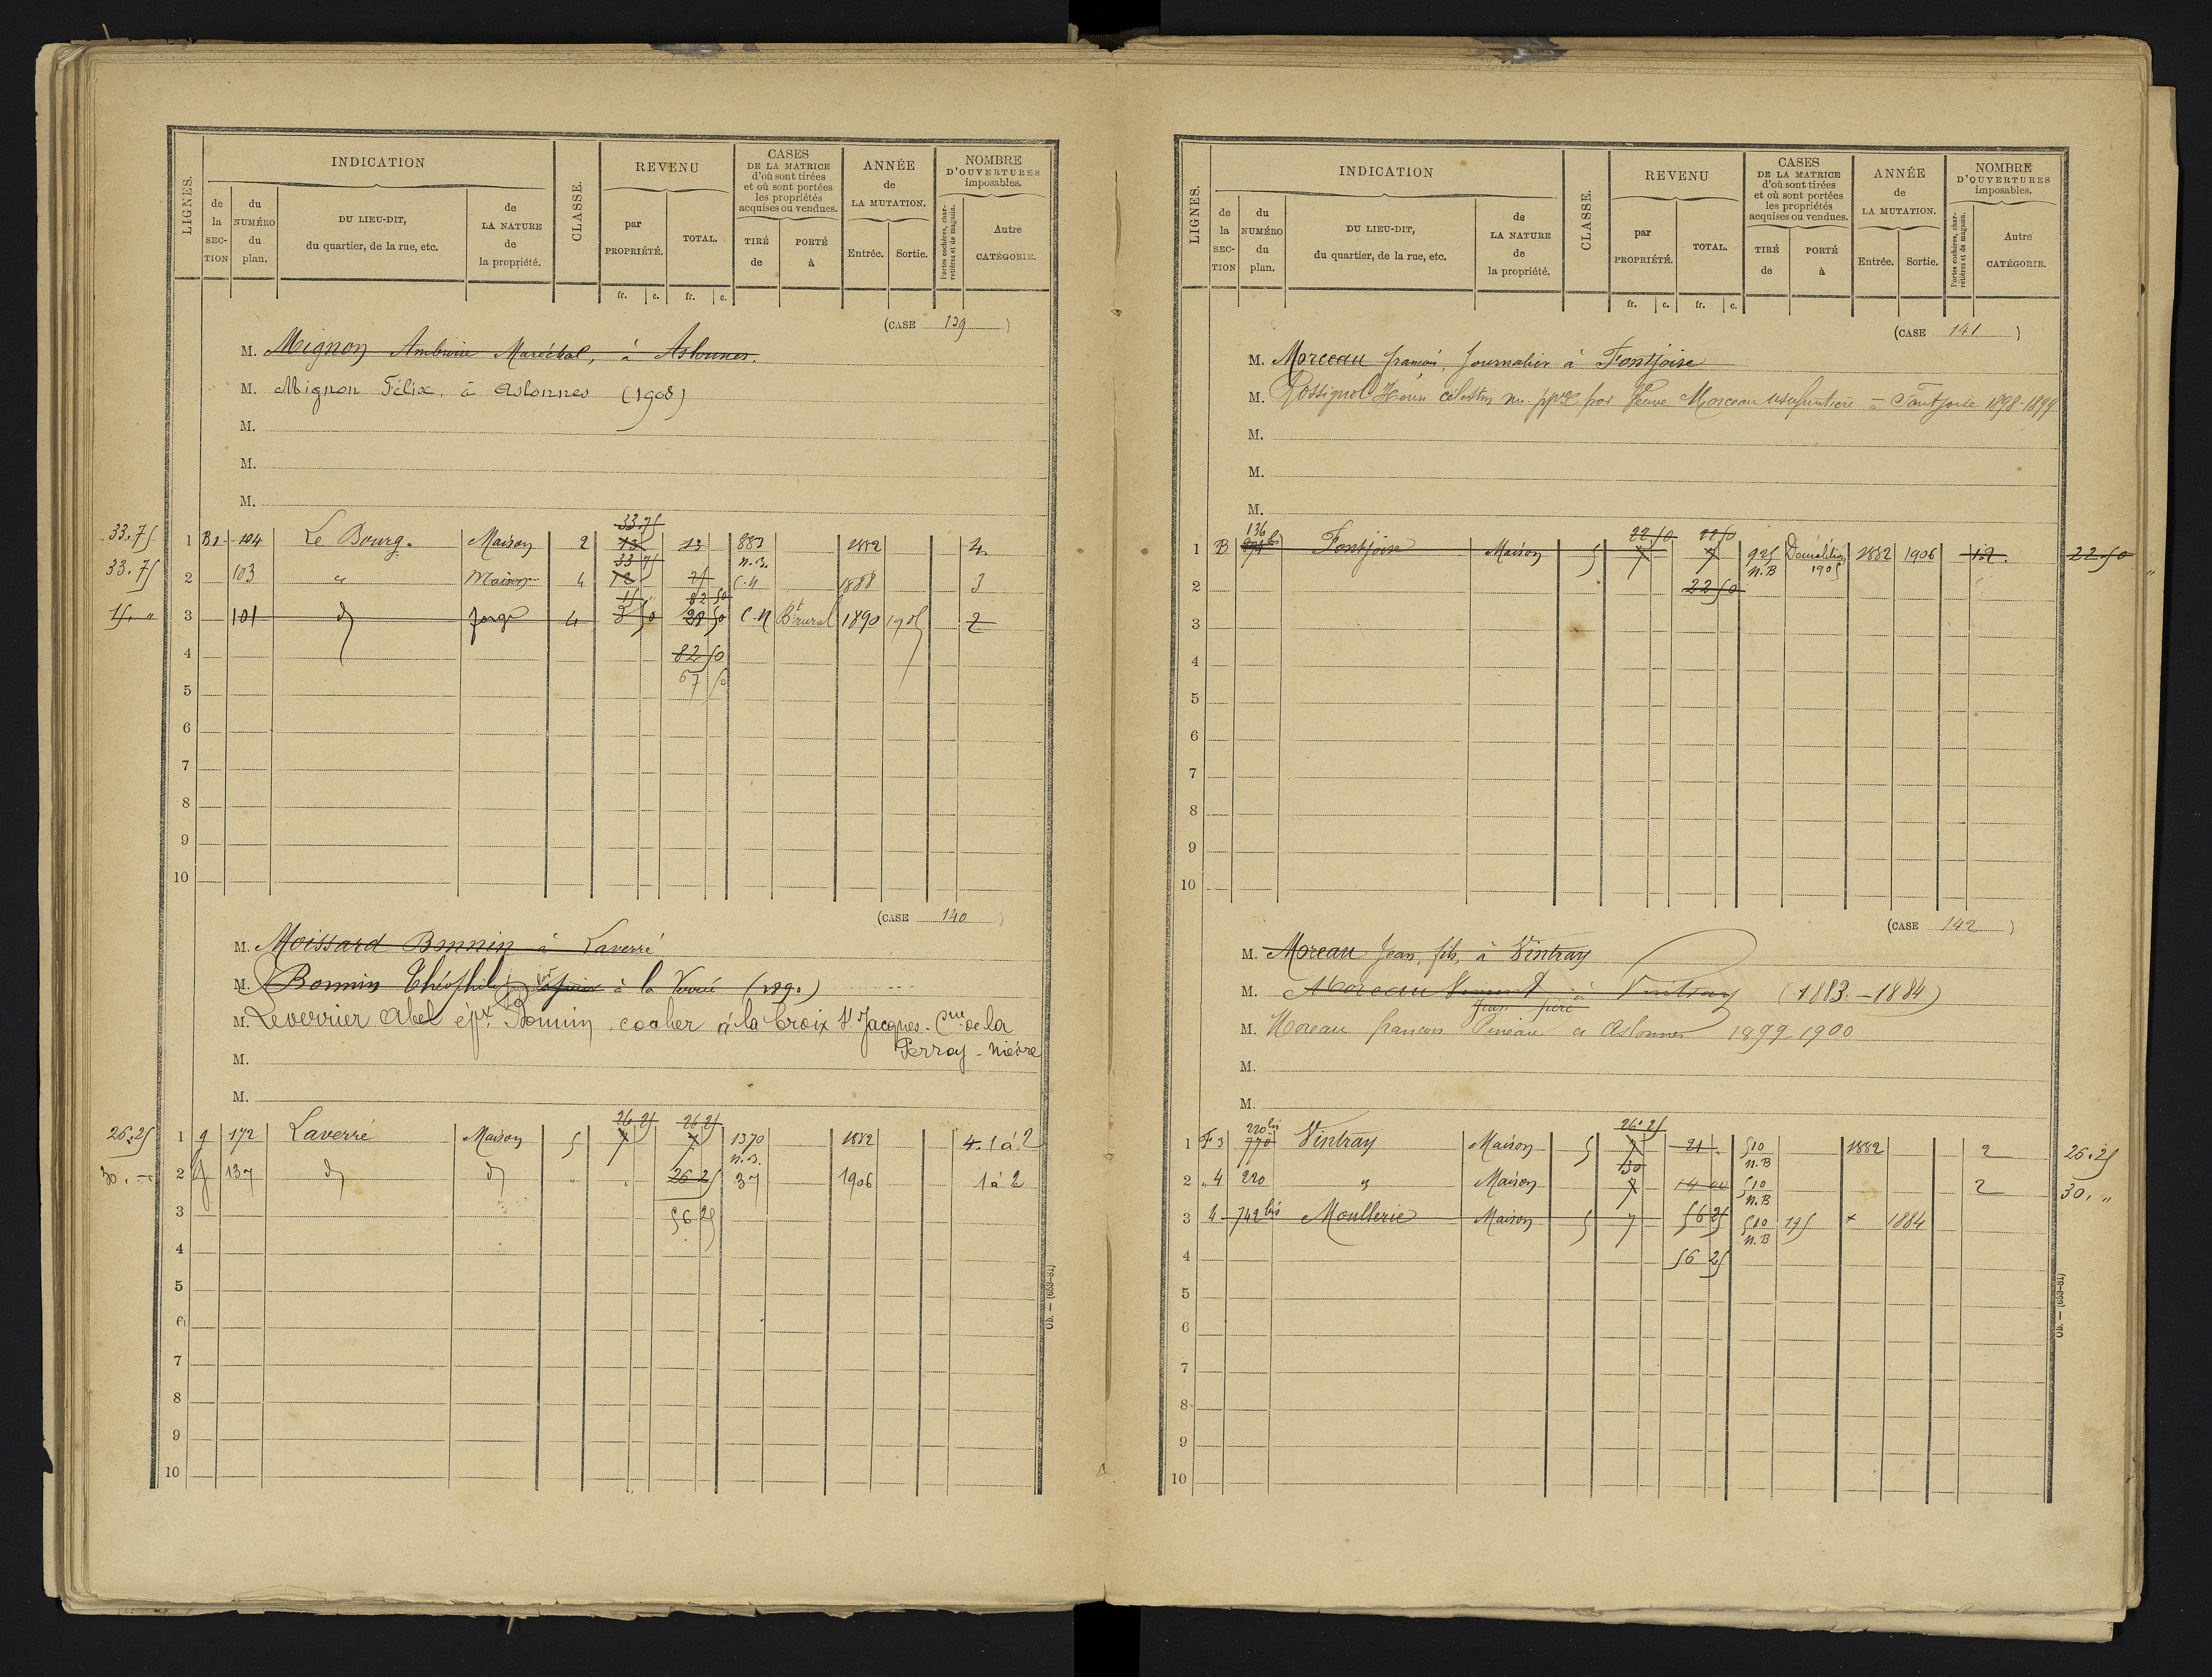 LIGNES.
INDICATION
CLASSE.
REVENU
CASES
DE LA MATRICE
d'où sont tirées
et où sont portées
les propriétés
acquises ou vendues.
ANNÉE
de
LA MUTATION.
NOMBRE
D'OUVERTURES
imposables.
de la SEC-TION
du NUMÉRO du plan.
DU LIEU-DIT,
du quartier, de la rue, etc.
de LA NATURE de la propriété.
par PROPRIÉTÉ.
TOTAL.
TIRÉ de
PORTÉ à
Entrée.
Sortie.
Portes cochères, char-
retières et de magasin.
Autre CATÉGORIE.
fr. c. fr. c.
(CASE 139)
M. Mignon Ambroise Maréchal, à Aslonnes.
M. Mignon Félix, à Aslonnes (1908)
M.
M.
M.
33.75
33.75 1 B2 104 Le Bourg. Maison 2 13 13 883 1882 4
33 75 n.B.
33.75 2 103 " Maison 4 12 25 C.N 1888 3
15 " 82 50
15. " 3 101 d forge 4 3 50 28 50 C.N Bt rural 1890 1905 2
4 82 50
5 67 50
6
7
8
9
10
(CASE 140)
M. Moissard Bonnin à Laverré
M. Bonnin Théophile à la Verré
M. Leverrier Abel épx Bonnin, cocher à la Croix St Jacques - Cne de la
M. Perray - Nièvre
M.
26 25 26 25
26.25 1 g 172 Laverré Maison 5 7 7 1370 1882 4. 1 à 2
n.B.
30. - 2 g 137 d d " 26 25 37 1906 1 à 2
3 56 25
4
5
6
7
8
9
10
Ob. — (653-81)
LIGNES.
INDICATION
CLASSE.
REVENU
CASES
DE LA MATRICE
d'où sont tirées
et où sont portées
les propriétés
acquises ou vendues.
ANNÉE
de
LA MUTATION.
NOMBRE
D'OUVERTURES
imposables.
de la SEC-TION
du NUMÉRO du plan.
DU LIEU-DIT,
du quartier, de la rue, etc.
de LA NATURE de la propriété.
par PROPRIÉTÉ.
TOTAL.
TIRÉ de
PORTÉ à
Entrée.
Sortie.
Portes cochères, char-
retières et de magasin.
Autre CATÉGORIE.
fr. c. fr. c.
(CASE 141)
M. Morceau françois, Journalier à Fontjoise
M. Rossignol Henri célestin nu ppre par Veuve Morceau usufruitière à Fontjoise 1898-1899
M.
M.
M.
136 bis 22 50 22 50
1 B Fontjoise Maison 5 7 7 925 Démolition 1882 1906 1.2. 22.50
n.B 1905
2 22 50
3
4
5
6
7
8
9
10
(CASE 142)
M. Moreau Jean, fils, à Vintray
M. Moreau Vincent à Vintray (1883-1884)
Jean père
M. Moreau francois Pineau à Aslonnes 1899-1900
M.
M.
220 bis 26 25
1 F 3 770 Vintray Maison 5 7 21 . 510 1882 2 26.25
30 n.B
2 " 4 220 " Maison 7 14 00 510 2 30. "
n.B
3 4 742 bis Moullerie Maison 5 7 56 25 510 175 + 1884
n.B
4 56 25
5
6
7
8
9
10
Ob. — (653-81)